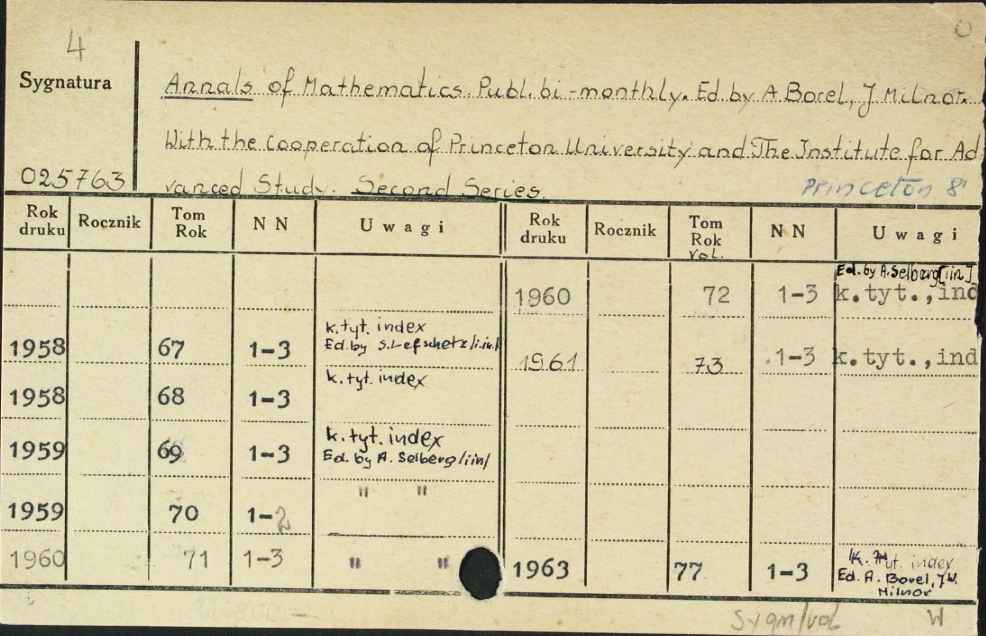 4
Sygnatura
Annals of Mathematics. Publ. bi-monthly. Ed. by A Borel, J Milnor.
With the cooperation of Princeton University and The Institute for Ad
025763
vanced Study. Second Series.
Princeton 8°
Rok druku Rocznik Tom Rok N N Uwagi Rok druku Rocznik Tom Rok vol. N N Uwagi
1960 72 1-3 Ed. by A. Selberg [i in] k.tyt., ind
1958 67 1-3 k.tyt. index Ed. by S. Lefschetz /i in./
1961 73 1-3 k.tyt., ind
1958 68 1-3 k.tyt. index
1959 69 1-3 k.tyt. index Ed. by A. Selberg /i in/
1959 70 1-2 " "
1960 71 1-3 " "
1963 77 1-3 k. tyt. index Ed. A. Borel, J.W. Milnor
Sygn/vol
W